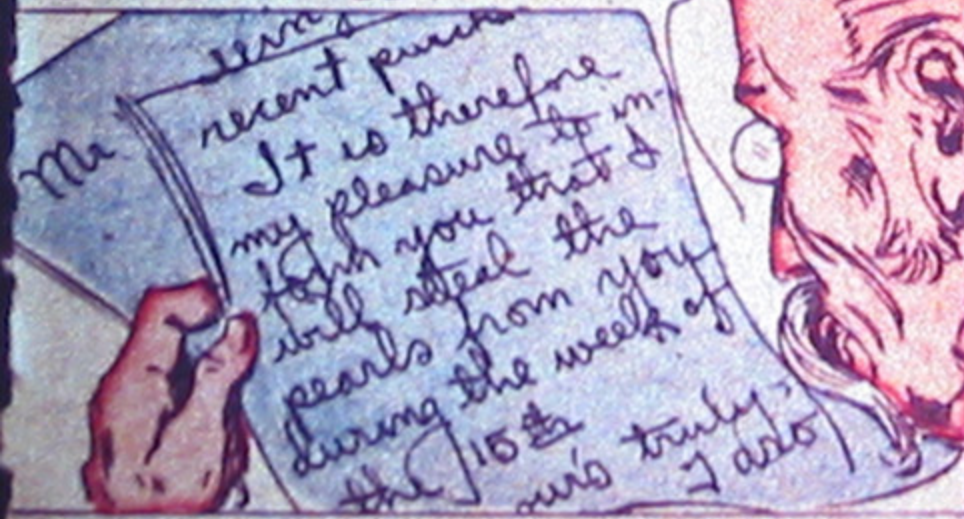 Mr.
recent
It is therefore
my pleasure to in-
form you that I
will steal the
pearls from you
during the week of
the 15th
truly,